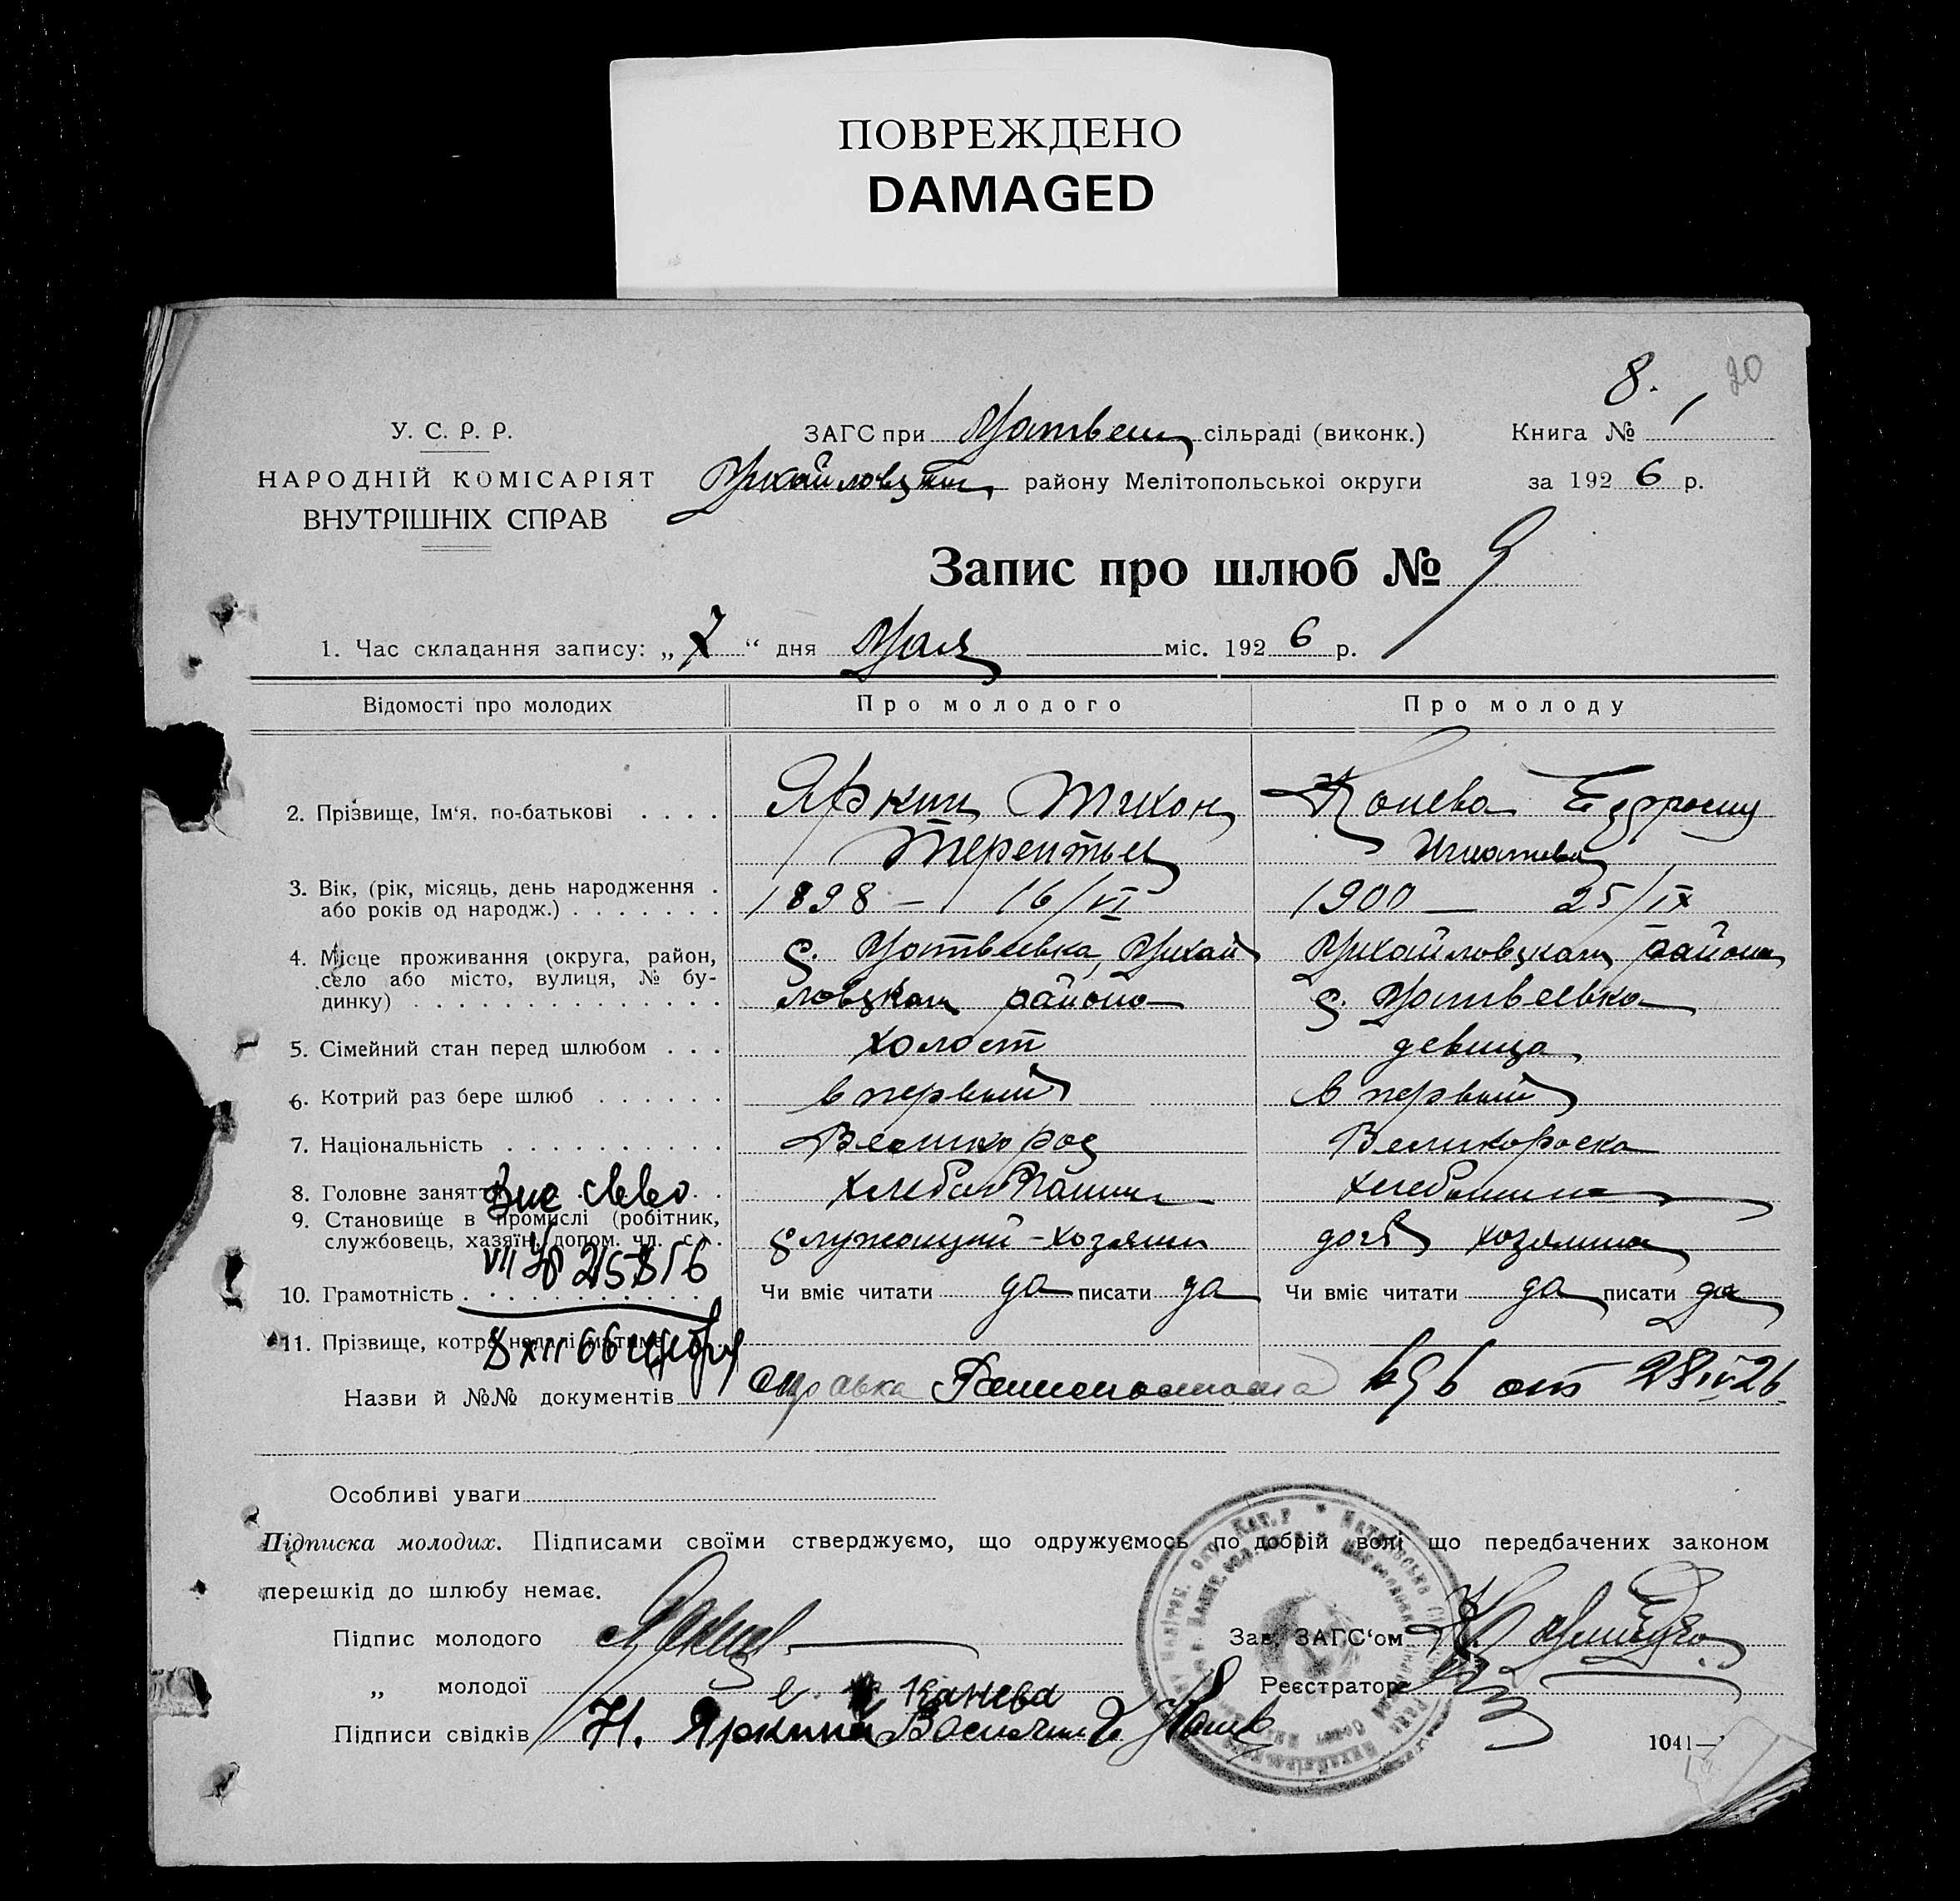 ПОВРЕЖДЕНО
DAMAGED
8. 20
У. С. Р. Р.
НАРОДНІЙ КОМІСАРІЯТ
ВНУТРІШНІХ СПРАВ
ЗАГС при Матвеев сільраді (виконк.)
Михайловском району Мелітопольської округи
Книга №
за 1926 р.
Запис про шлюб № 9
1. Час складання запису: „7“ дня Мая міс. 1926 р.
Відомості про молодих Про молодого Про молоду
2. Прізвище, Ім'я, по-батькові Яркин Тихон Конева Ефросин
Терентьев Игнатьева
3. Вік, (рік, місяць, день народження
або років од народж.) 1898 — 16/VI 1900 — 25/IX
4. Місце проживання (округа, район, с. Матвеевка, Михай Михайловском района
село або місто, вулиця, № бу-
динку) ловском района с. Матвеевка
5. Сімейний стан перед шлюбом холост девица
6. Котрий раз бере шлюб в первый в первый
7. Національність Великорос Великороска
8. Головне заняття хлебопашец
9. Становище в промислі (робітник,
службовець, хазяїн, допом. чл. с.) служащий - хозяин дочь хозяина
10. Грамотність Чи вміє читати да писати да Чи вміє читати да писати да
11. Прізвище, котре надалі матиме
Назви й №№ документів справка от 28 IV 26
Особливі уваги
Підписка молодих. Підписами своїми стверджуємо, що одружуємось по добрій волі що передбачених законом
перешкід до шлюбу немає.
Підпис молодого Яркин Зав. ЗАГС'ом
„ молодої Е. Канева Реєстратор
Підписи свідків Н. Яркина
1041—